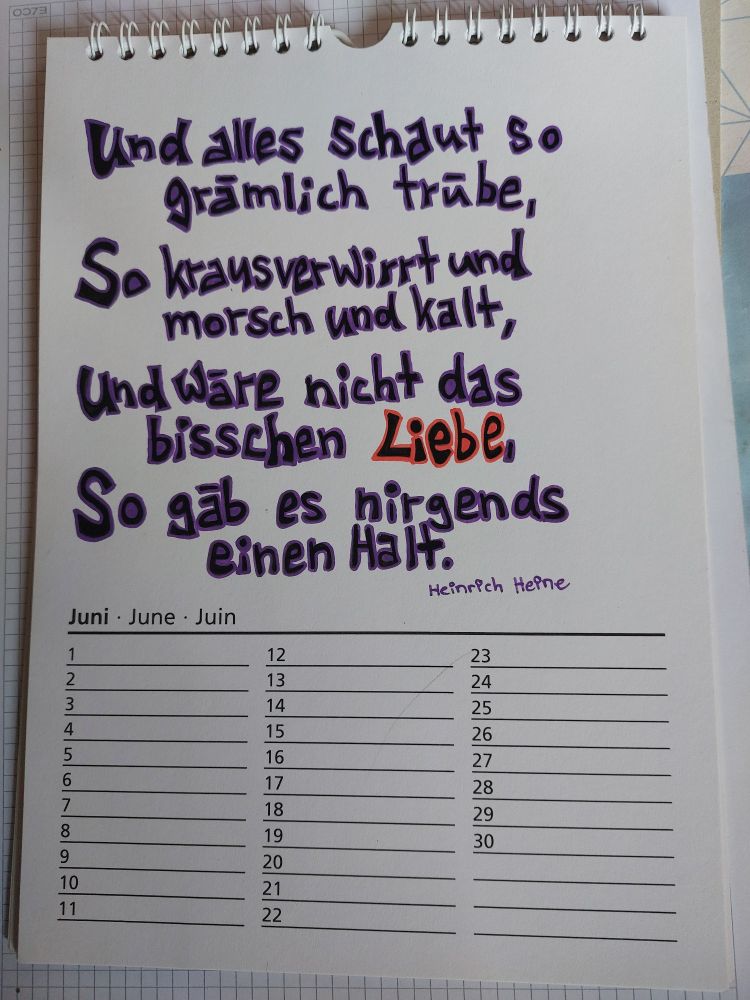 Und alles schaut so
grämlich trübe,
So krausverwirrt und
morsch und kalt,
Und wäre nicht das
bisschen Liebe,
So gäb es nirgends
einen Halt.
Heinrich Heine
Juni · June · Juin
1 12 23
2 13 24
3 14 25
4 15 26
5 16 27
6 17 28
7 18 29
8 19 30
9 20
10 21
11 22